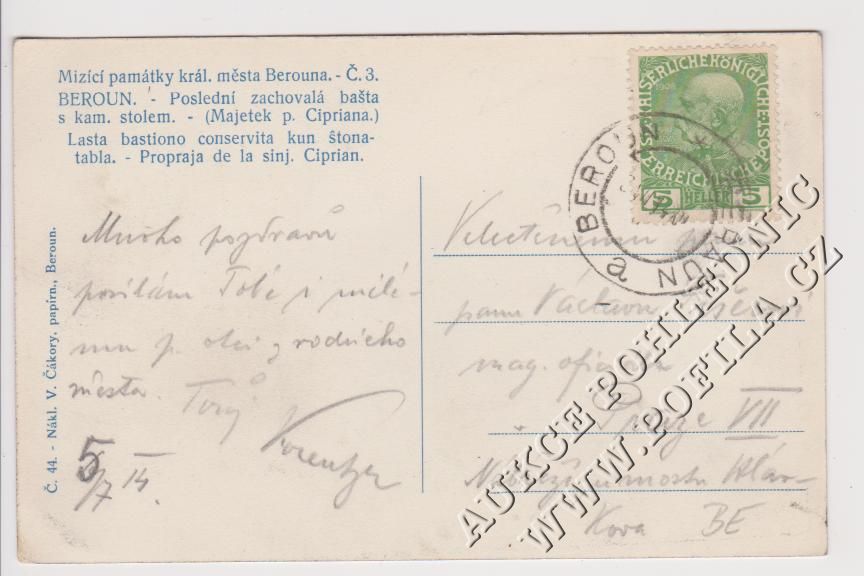 Mizící památky král. města Berouna. - Č. 3.
BEROUN. - Poslední zachovalá bašta
s kam. stolem. - (Majetek p. Cipriana.)
Lasta bastiono conservita kun ŝtona-
tabla. - Propraja de la sinj. Ciprian.
KAISERLICHE KÖNIGLICHE
ÖSTERREICHISCHE POST
1908
5 HELLER 5
BEROUN
BERAUN
a
Mnoho pozdravů
posílám Tobě i milé-
mu p. otci z rodného
města. Tvůj
5/7 14.
Č. 44. - Nákl. V. Čákory, papírn., Beroun.
Velectěnému
panu Václavu
mag.
Praze VII
Nábřeží u mostu Hláv-
kova BE
AUKCE POHLEDNIC
WWW.POFILA.CZ